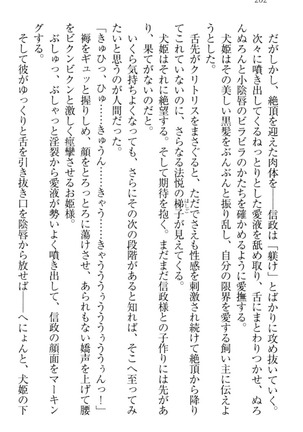 202
だがしかし、絶頂を迎えた肉体を――信政は「躾け」とばかりに攻めたてる。
次々に噴き出してくるねっとりとした愛液を舐め取り、舌にまとわりつかせ、ぬろ
んぬろんと小陰唇のビラビラのかたちを確かめるように愛撫する。
犬姫はその美しい黒髪をぶんぶんと振り乱し、自分の限界を愛する飼い主に伝えよ
うとする。
舌先がクリトリスをまさぐると、ただでさえ性感を刺激され続けて絶頂から降り
られないのに、さらなる法悦の梯子が見えてくる。
犬姫はそれに絶望する。そして期待を抱く。まだまだ信政様との子作りには先があ
り、果てがないのだと。
いくら気持ちよくなっても、さらにその次の段階があると知れば、そこへ至ってみ
たいと思うのが人間だった。
「きゅひっ、ひっ……きゅうん……きゃう……きゃうぅぅうぅぅぅぅぅぅ！」
褥をギュッと握りしめ、顔をとろっとろに蕩けさせ、あられもない嬌声を上げて腰
をビクンビクンと激しく痙攣させるお姫様。
ぷしゅっ、ぷしゃっと淫裂から愛液が勢いよく噴き出して、信政の顔面をマーキン
グする。
そして彼がゆっくりと舌を引き抜き口を陰唇から放せば――へにょんと、犬姫の下